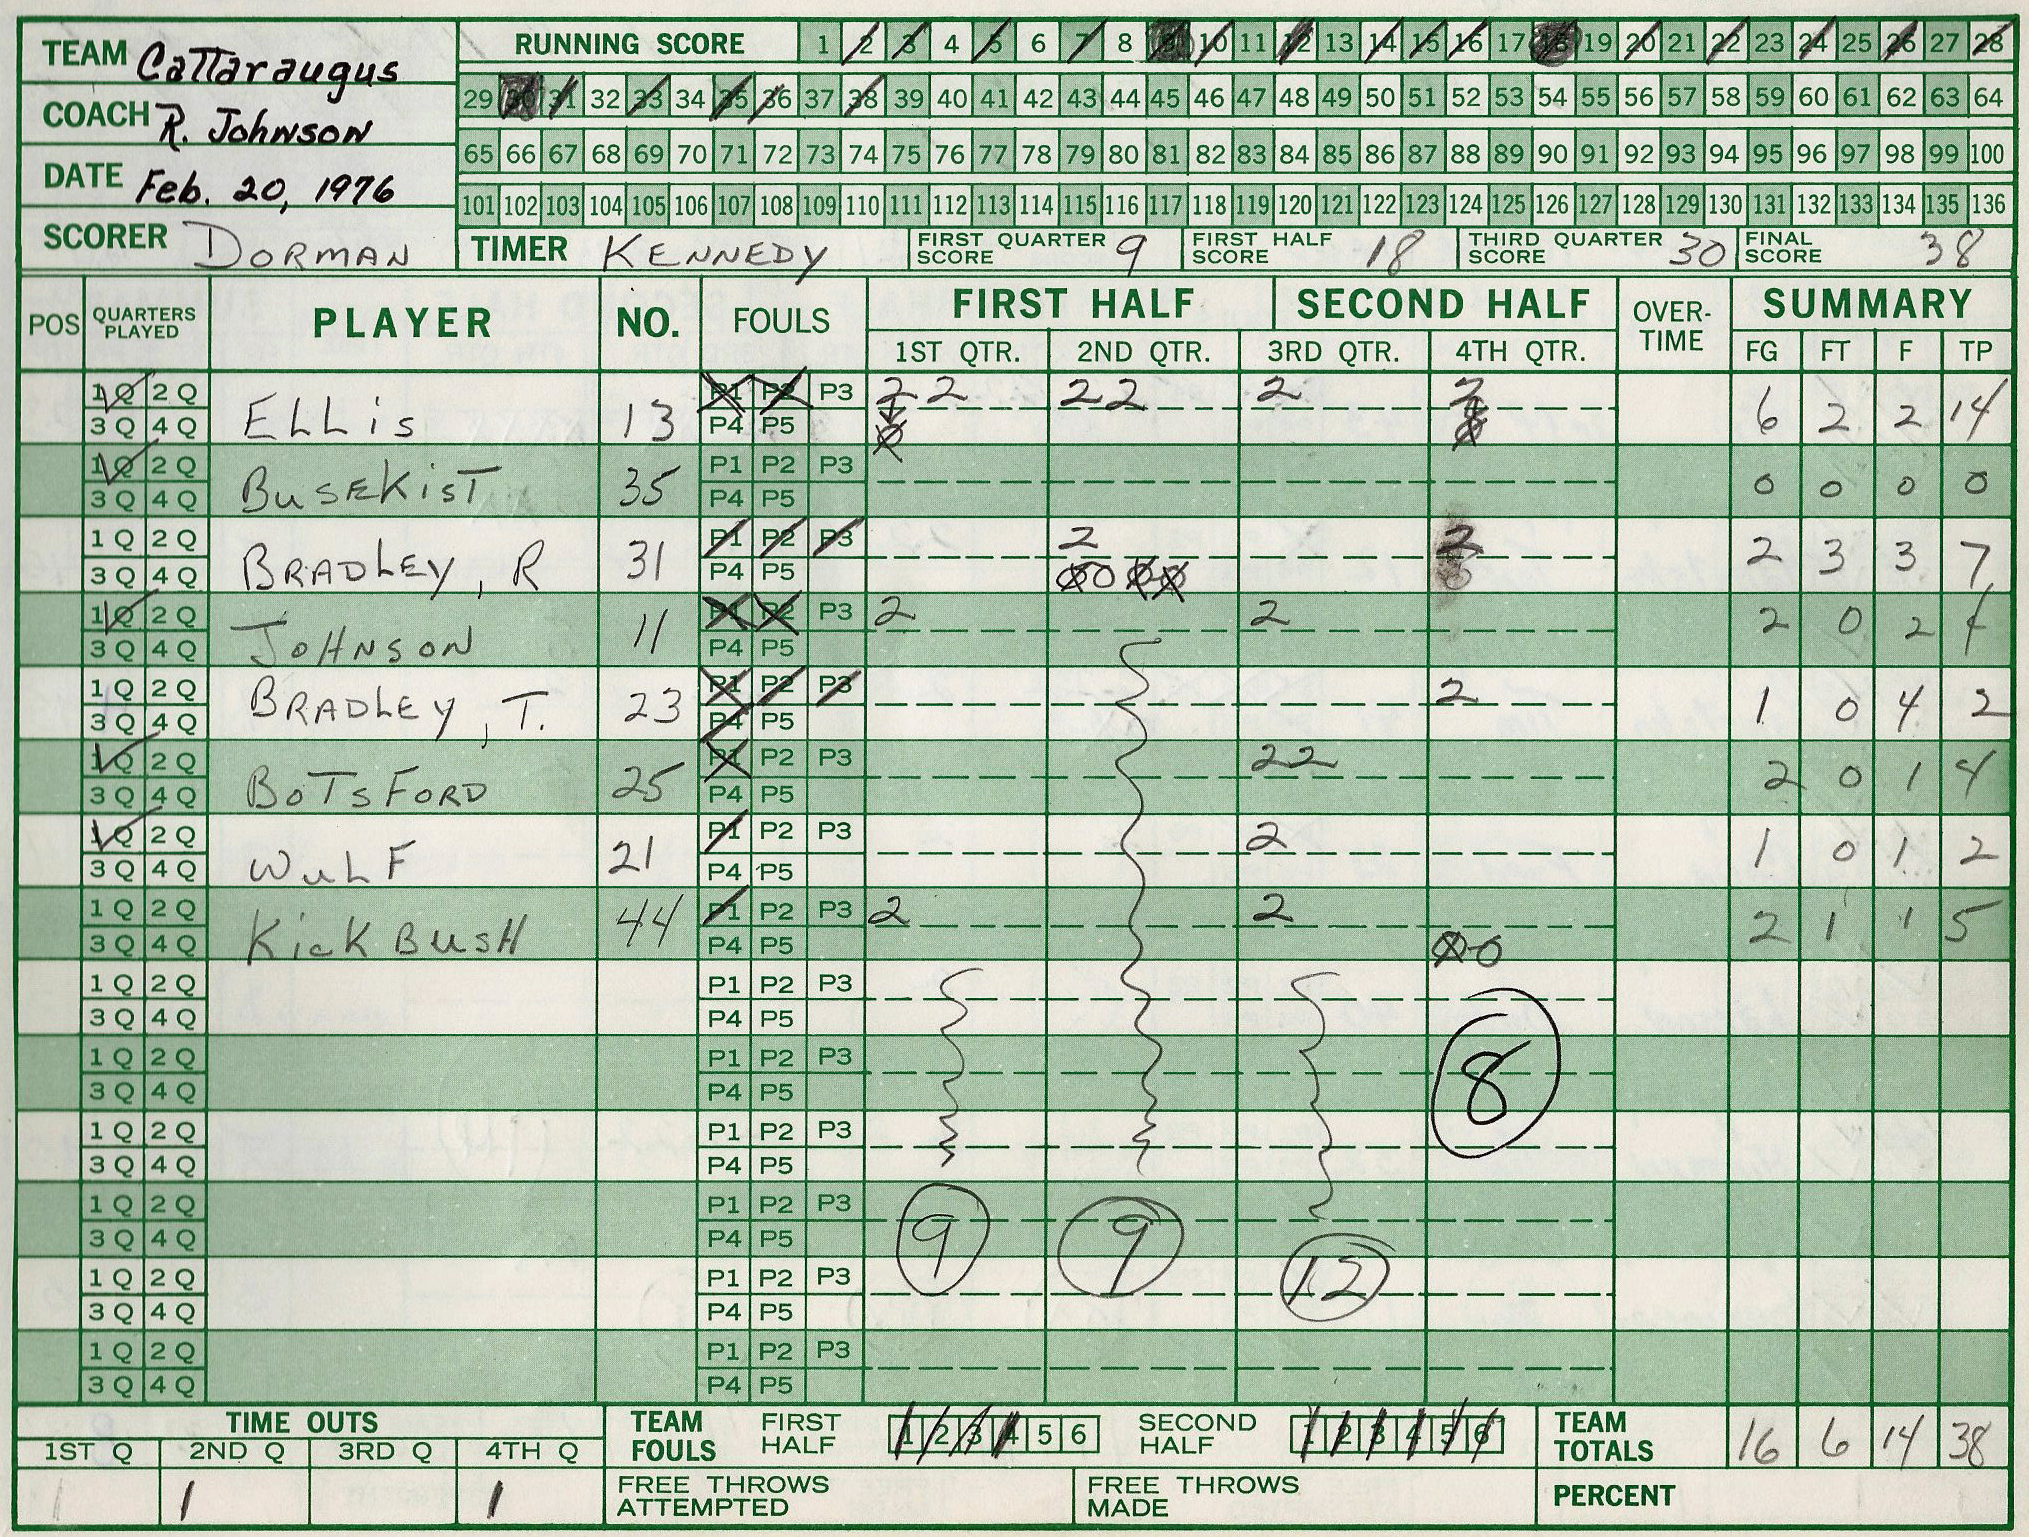 TEAM Cattaraugus
COACH R. Johnson
DATE Feb. 20, 1976
SCORER DORMAN
RUNNING SCORE 1 2 3 4 5 6 7 8 9 10 11 12 13 14 15 16 17 18 19 20 21 22 23 24 25 26 27 28
29 30 31 32 33 34 35 36 37 38 39 40 41 42 43 44 45 46 47 48 49 50 51 52 53 54 55 56 57 58 59 60 61 62 63 64
65 66 67 68 69 70 71 72 73 74 75 76 77 78 79 80 81 82 83 84 85 86 87 88 89 90 91 92 93 94 95 96 97 98 99 100
101 102 103 104 105 106 107 108 109 110 111 112 113 114 115 116 117 118 119 120 121 122 123 124 125 126 127 128 129 130 131 132 133 134 135 136
TIMER KENNEDY FIRST QUARTER SCORE 9 FIRST HALF SCORE 18 THIRD QUARTER SCORE 30 FINAL SCORE 38
POS QUARTERS PLAYED PLAYER NO. FOULS FIRST HALF SECOND HALF OVER-TIME SUMMARY
1ST QTR. 2ND QTR. 3RD QTR. 4TH QTR. FG FT F TP
1Q 2Q P1 P2 P3 2 2 2 2 2 2
3Q 4Q ELLis 13 P4 P5 0 0 6 2 2 14
1Q 2Q P1 P2 P3
3Q 4Q BUSEKIST 35 P4 P5 0 0 0 0
1Q 2Q P1 P2 P3 2 2
3Q 4Q BRADLEY, R 31 P4 P5 0 0 0 0 0 2 3 3 7
1Q 2Q P1 P2 P3 2 2
3Q 4Q JOHNSON 11 P4 P5 2 0 2 4
1Q 2Q P1 P2 P3 2
3Q 4Q BRADLEY, T. 23 P4 P5 1 0 4 2
1Q 2Q P1 P2 P3 2 2
3Q 4Q BOTSFORD 25 P4 P5 2 0 1 4
1Q 2Q P1 P2 P3 2
3Q 4Q WULF 21 P4 P5 1 0 1 2
1Q 2Q P1 P2 P3 2 2
3Q 4Q KickBUSH 44 P4 P5 0 0 2 1 1 5
1Q 2Q P1 P2 P3
3Q 4Q P4 P5
1Q 2Q P1 P2 P3
3Q 4Q P4 P5 8
1Q 2Q P1 P2 P3
3Q 4Q P4 P5
1Q 2Q P1 P2 P3
3Q 4Q P4 P5 9 9
1Q 2Q P1 P2 P3
3Q 4Q P4 P5 12
1Q 2Q P1 P2 P3
3Q 4Q P4 P5
TIME OUTS TEAM FOULS FIRST HALF 1 2 3 4 5 6 SECOND HALF 1 2 3 4 5 6 TEAM TOTALS 16 6 14 38
1ST Q 2ND Q 3RD Q 4TH Q
1 1 1 FREE THROWS ATTEMPTED FREE THROWS MADE PERCENT